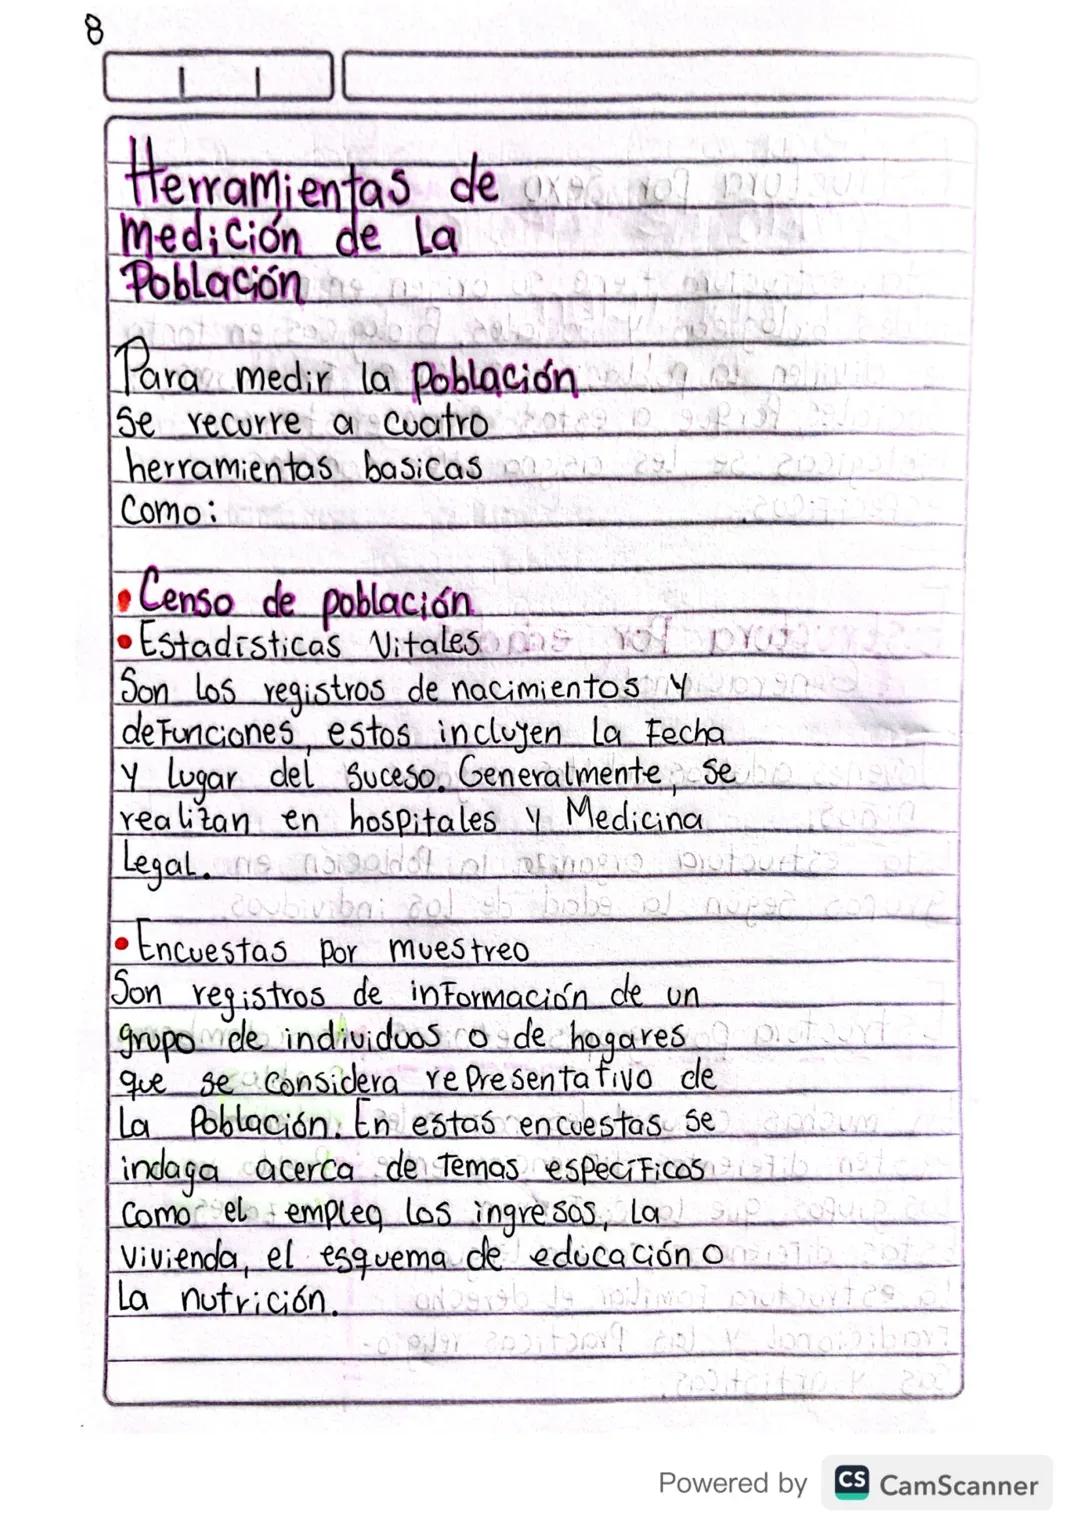 8
Herramientas de
medición de La
Población
Para medir la Población
Se recurre a cuatro
herramientas basicas
Como:
• Censo de población
• Estadísticas Vitales
Son Los registros de nacimientos y
deFunciones, estos incluyen La Fecha
y Lugar del Suceso. Generalmente, se
realizan en hospitales y Medicina
Legal.
• Encuestas por muestreo
Son registros de inFormación de un
grupo de individuos o de hogares
que se considera rePresentativo de
La Población. En estas encuestas se
indaga acerca de Temas esPecíFicos
Como el empleo, Los ingresos, La
Vivienda, el esquema de educación o
La nutrición.
Powered by CS CamScanner